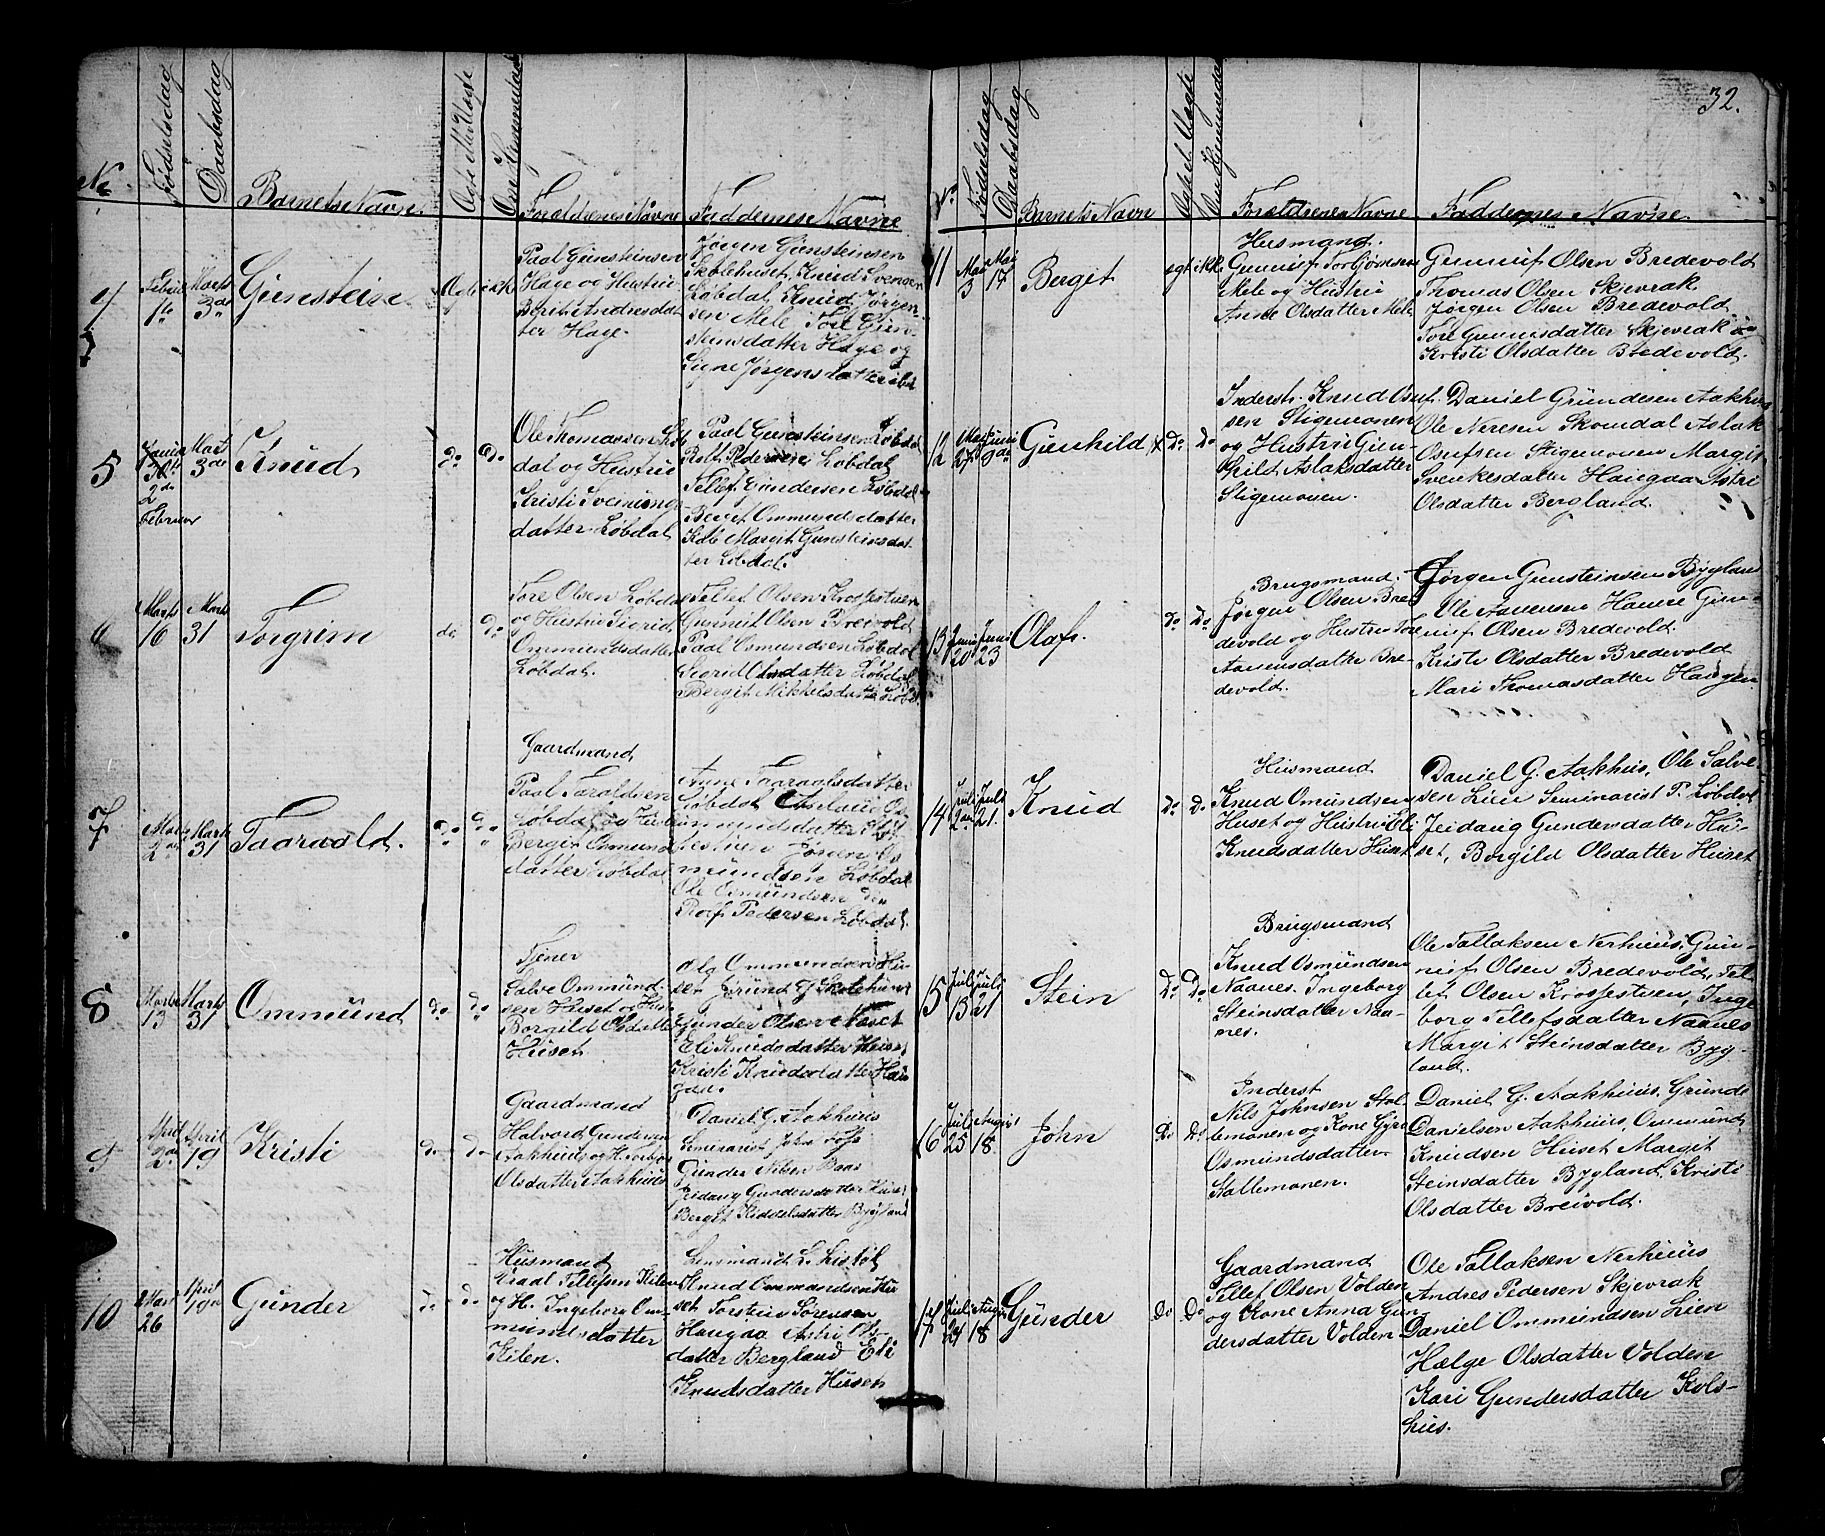 32.
No
Fødselsdag
Daabsdag
Barnets Navn
Ægte Uægte
Om Hjemmedøbt
Forældrenes Navne
Faddernes Navne
4
Februar 1ste
Marts 3die
Gunstein
Ægte
ikke
Paal Gunsteinsen
Hage og Hustru
Berit Andresdat
ter Hage.
Jørgen Gunsteinsen
Skolehuset, Knud Svensen
Løbdal, Knud Jørgen
sen Mele Tore Gun
steinsdatter Hage og
Signe Jørgensdatter ibid
5
2de
Februar
Marts
3die
Knud
do
do
Ole Thomassen Løb
dal og Hustru
Kristi Sveinungs
datter Løbdal
Paal Gunsteinsen Løbdal
Rolf Pedersen Løbdal
Tellef Gundersen Løbdal
Berget Ommundsdatter
Løb Margit Gunsteinsdat
ter Løbdal.
6
Marts
16
Marts
31
Torgrim
do
do
Tore Olsen Løbdal
og Hustru Sigrid
Ommundsdatter
Løbdal.
Tellef Olsen Krosfestuen
Gunnuf Olsen Breivold
Paal Osmundsen Løbdal
Sigrid Olsdatter Løbdal
Bergit Mikkelsdatter Løbd.
7
Marts
2den
Marts
31
Taaraald.
do
do
Gaardmand
Paal Taraldsen
Løbdal og Hustru
Bergit Osmund
datter Løbdal
Anne Taaraalsdatter
Løbdal Aslaug Os
mundsdatter Kros
festuen Jørgen Os
mundsen Løbdal
Ole Osmundsen do
Rolf Pedersen Løbdal.
8
Marts
13
Marts
31
Ommund
do
do
Tjener
Salve Ommund
sen Huset og Hustru
Borgild Olsdatter
Huset
Olg Ommundsen Hu
set Jorund G Skolehuset
Gunder Olsen Huset
Eli Knudsdatter Huset
Kristi Knudsdatter Hau
gaa.
9
April
2den
April
19
Kristi
do
do
Gaardmand
Halvord Gundersen
Aakhus og H. Torbjør
Olsdatter Aakhus
Daniel G. Aakhus
Seminarist John Tofte
Gunder Nilsen Baas
Jeidaug Gundersdatter Huset
Bergit Kiddelsdatter Bygland
10
Mar
26
April
19de
Gunder
do
do
Husmand
Vraal Tellefsen Kilen
og H. Ingeborg Om
mundsdatter
Kilen.
Lensmand L. Listøl
Knud Ommundsen Hu
set Torstein Sørensen
Haugaa Astri Ols
datter Bergland Eli
Knudsdatter Huset
No
Fødselsdag
Daabsdag
Barnets Navn
Ægte Uægte
Om Hjemmedøbt
Forældrenes Navne
Faddernes Navne
11
Mai
3
Mai
17
Bergit
egt
ikke
Husmand.
Gunnuf Torbjørnsen
Mele og Hustru
Anne Olsdatter Mele
Gunnuf Olsen Bredevold
Thomas Olsen Skjevrak
Jørgen Olsen Bredevold
Tore Gunnisdatter Skjevrak og
Kristi Olsdatter Bredevold.
12
Mai
27
Juni
2den
Gunhild x
Do
Do
Inderst. Knud Osuf
sen Stigemonen
og Hustru Gun
hild Aslaksdatter
Stigemonen.
Daniel Gundersen Aakhus
Ole Neresen Skomdal Aslak
Osufsen Stigemonen Margit
Svenkesdatter Haugaa Astri
Olsdatter Bergland.
13
Juni
20
Juni
23
Olaf.
Do
Do
Brugsmand.
Jørgen Olsen Bre
devold og Hustru Tore
Aanensdatter Bre
devold.
Jørgen Gunsteinsen Bygland
Ole Aanensen Hanere Gun
nuf Olsen Bredevold.
Kristi Olsdatter Bredevold
Mari Thomasdatter Haugen
14
Juli
2den
Juli
21.
Knud
Do
Do
Husmand
Knud Omundsen
Huset og Hustru Eli
Knudsdatter Huset
Daniel G. Aakhus, Ole Salve
sen Lien Seminarist P. Løbdal
Jeidaug Gundersdatter Hu-
set, Borgild Olsdatter Huset
15
Juli
13
Juli
21
Stein
Do
Do
Brugsmand
Knud Osmundsen
Naanes, Ingeborg
Steinsdatter Naa
nes.
Ole Tallaksen Nerhuus, Gun-
nuf Olsen Bredevold, Tel
lef Olsen Krosfestuen, Inge
borg Tellefsdatter Naanes
Margit Steinsdatter Byg-
land.
16
Juli
25
August
18.
John
Do
Do
Inderst
Nils Johnsen Stal
lemonen og Kone Gyro
Osmundsdatter
Stallemonen.
Daniel G. Aakhuus, Gunde
Danielsen Aakhuus, Ommund
Knudsen Huset Margit
Steinsdatter Bygland, Kristi
Olsdatter Breivold.
17
Juli
24
August
18
Gunder
Do
Do
Gaardmand
Tellef Olsen Volden
og Kone Anna Gun
dersdatter Volden
Ole Tallaksen Nerhuus
Andres Pedersen Skjevrak
Daniel Ommundsen Lien
Hælge Olsdatter Volden
Kari Gundersdatter Kols-
hus.